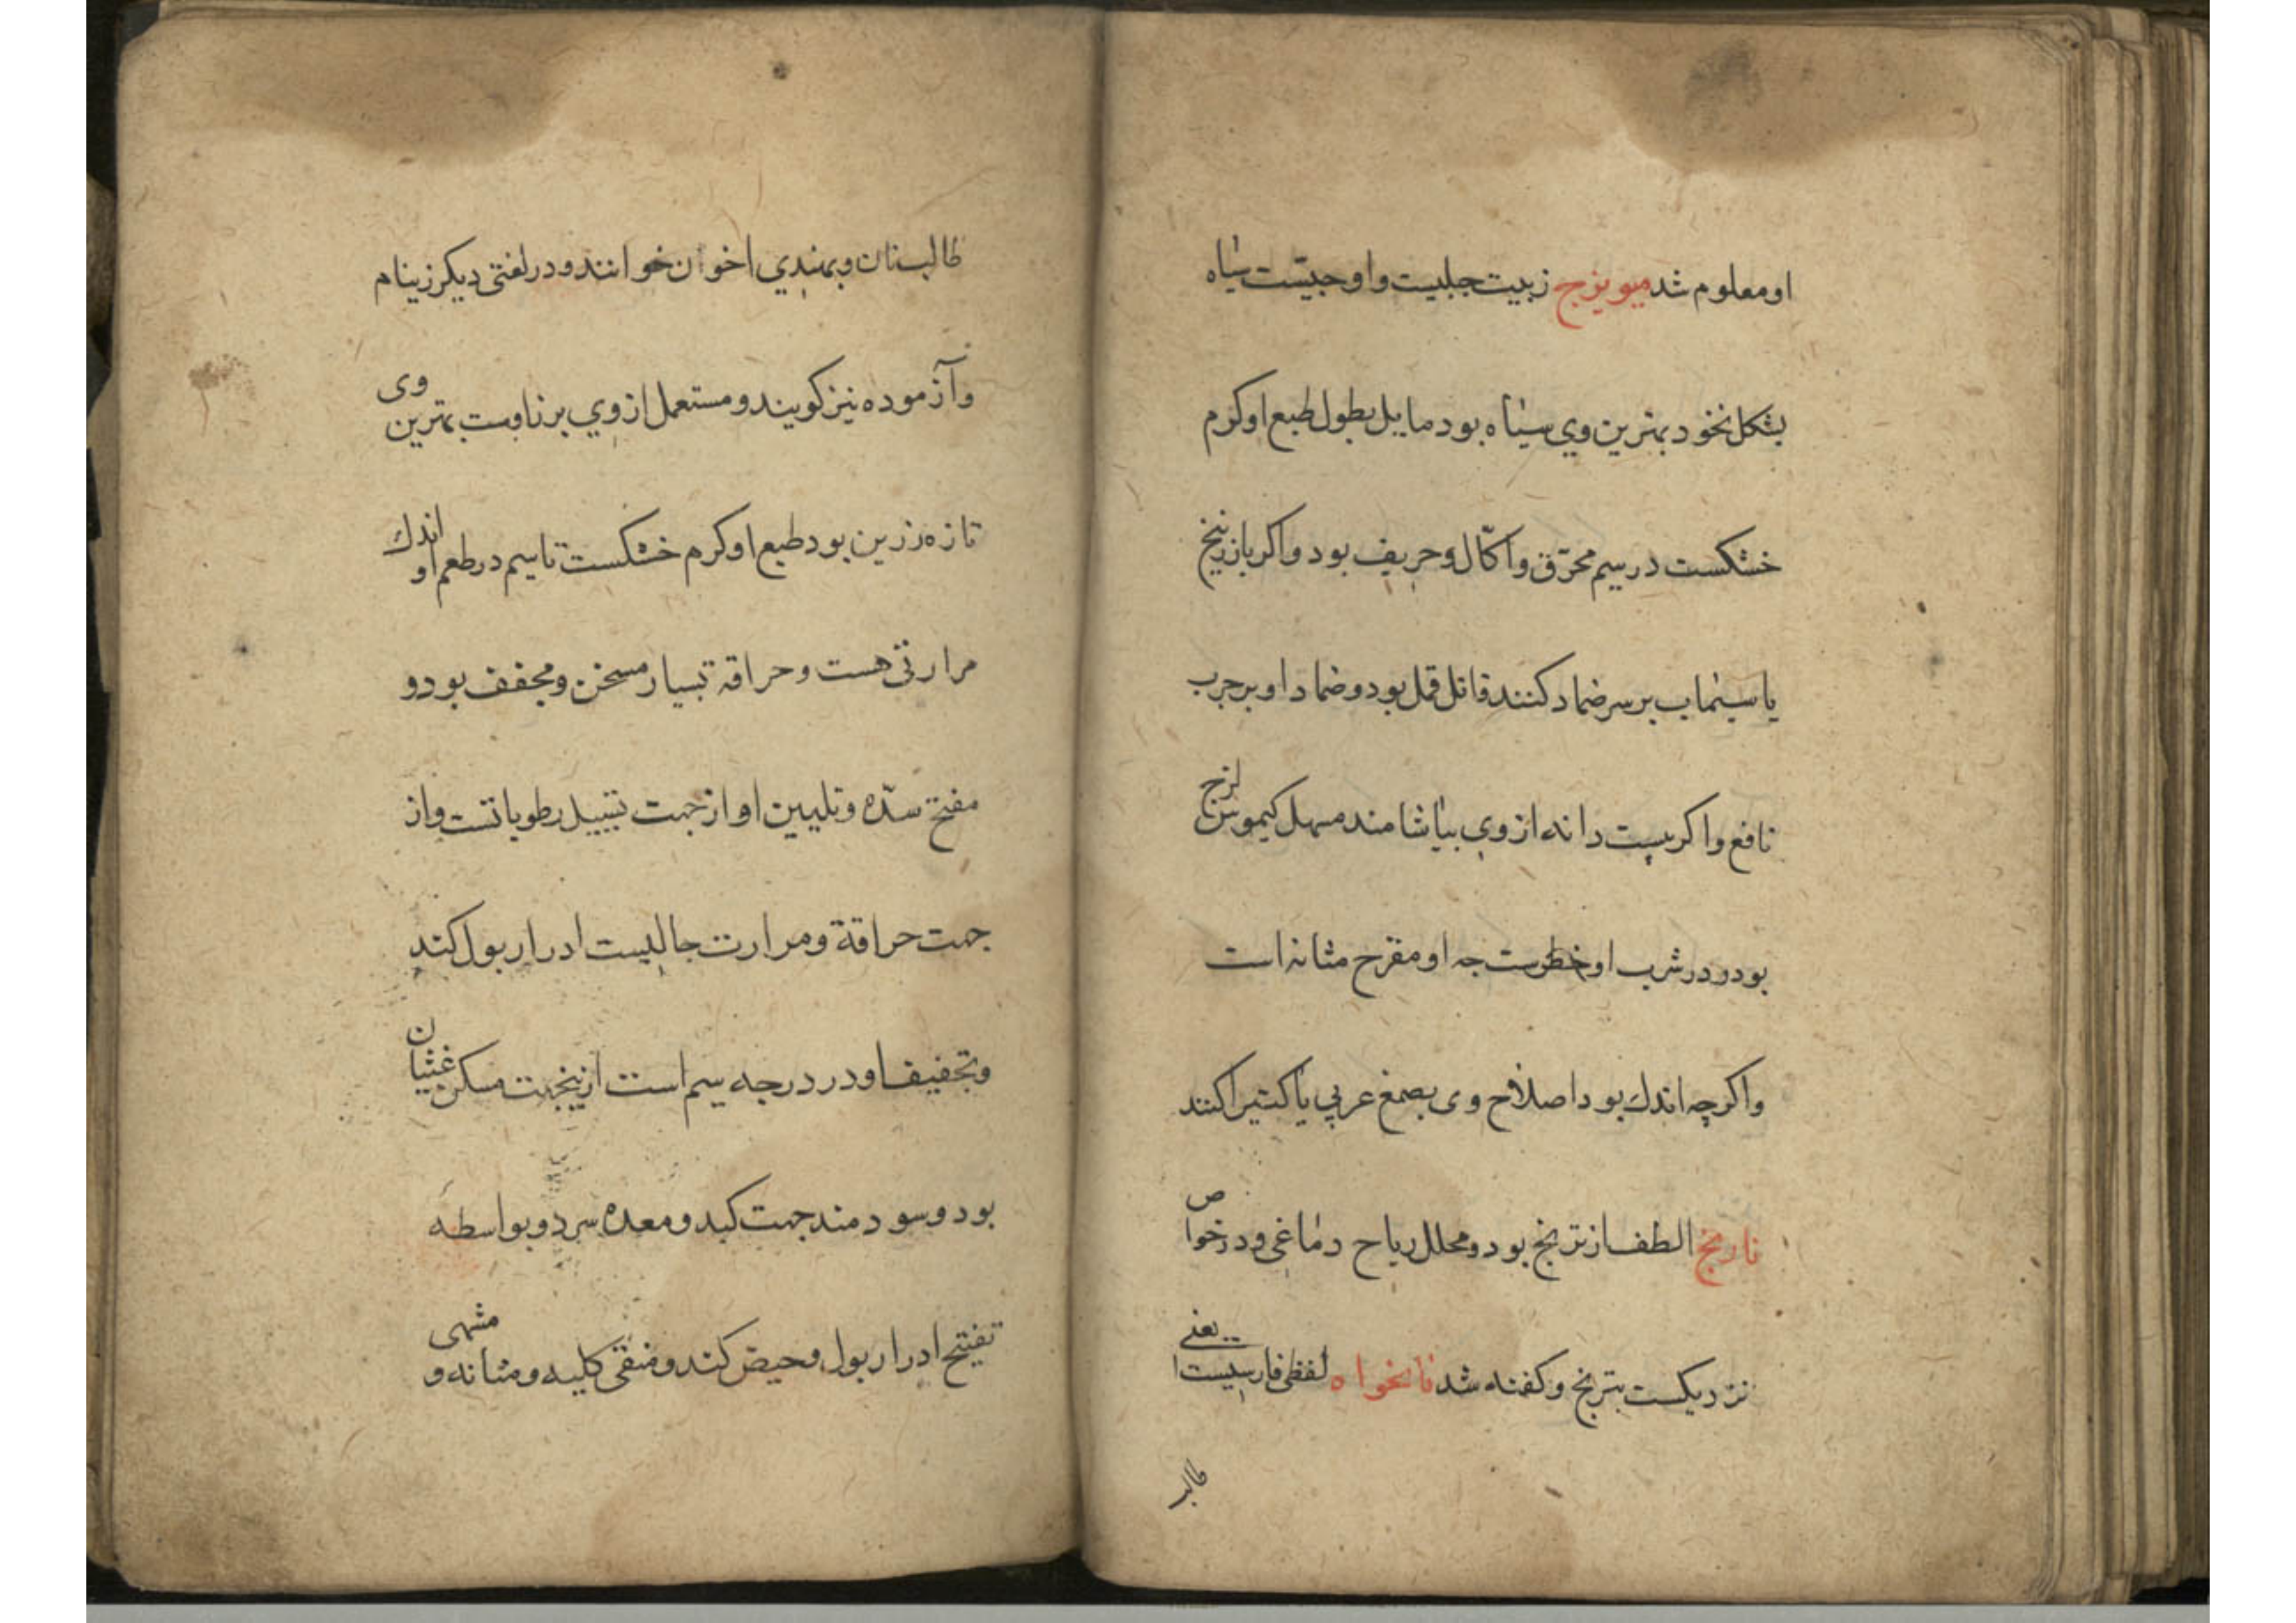 او معلوم شد میویزج زبیب جبلیست و او حبیست سیاه
بشکل نخود بهترین وي سیاه بود مایل بطول طبع او کرم
خشکست در سیم محرّق و اکّال و حریف بود و اکر با زرنیخ
یا سیماب بر سر ضماد کنند قاتل قمل بود و ضماد او بر جرب
نافع و اکر بیست دانه از وي بیاشامند مسهل کیموس لزج
بود و در شرب او خطرست چه او مقرح مثانه است
و اکرچه اندك بود اصلاح وی بصمغ عربي یا کتیرا کنند
نارنج الطف از ترنج بود و محلل ریاح دماغی و در خواص
نزدیکست بترنج و کفته شد نانخواه لفظی فارسیست یعنے
طالب
طالب نان و بهندي اخوان خوانند و در لغتی دیکر زینام
و آزموده نیز کویند و مستعمل از وي بر ناوست بهترین وی
تازه زرین بود طبع او کرم خشکست تا سیم در طعم او اندك
مرارتی هست و حراقه بسیار مسخن و مجفف بود و
مفتح سدّه و تلیین او از جهت تسییل رطوباتست و از
جهت حراقة و مرارت جالیست ادرار بول کند
و تجفیف او در درجه سیم است ازینجهت مسکن غثیان
بود و سودمند جهت کبد و معده سرد و بواسطه
تفتیح ادرار بول و حیض کند و منقی کلیه و مثانه و مشهی